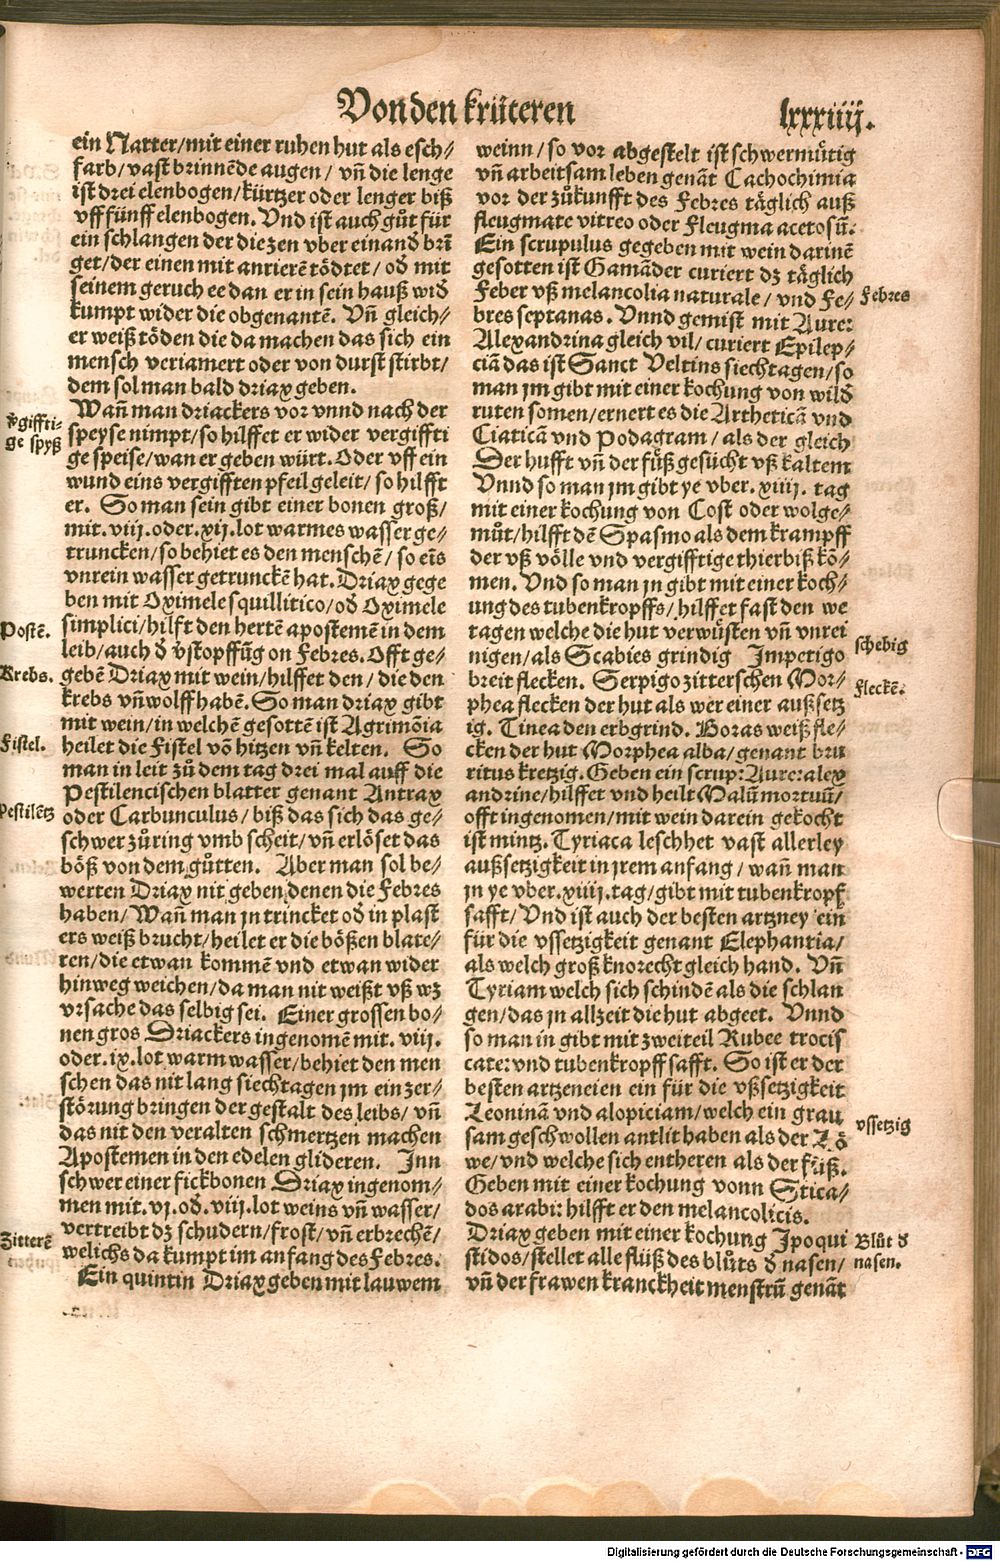 Von den krüteren
lxxxiiij.
ein Natter/mit einer ruhen hut als esch⸗/
farb/vast brinnēde augen/ vñ die lenge
ist drei elenbogen/kürtzer oder lenger biß
vff fünff elenbogen. Vnd ist auch gůt für
ein schlangen der die zen vber einand brī
get/der einen mit anrierē tödtet/ od mit
seinem geruch ee dan er in sein hauß wid
kumpt wider die obgenantē. Vñ gleich⸗
er weiß töden die da machen das sich ein
mensch veriamert oder von durst stirbt/
dem sol man bald driax geben.
Wañ man driackers vor vnnd nach der
speyse nimpt/so hilffet er wider vergiffti
ge speise/wan er geben würt. Oder vff ein
wund eins vergifften pfeil geleit/ so hilfft
er. So man sein gibt einer bonen groß/
mit.viij.oder.xij.lot warmes wasser ge⸗
truncken/so behiet es den menschē/ so eīs
vnrein wasser getrunckē hat. Driax gege
ben mit Oximele squillitico/od Oximele
simplici/hilft den hertē apostemē in dem
leib/auch d̄ v̄stopffūg on Febres. Offt ge⸗
gebē Driax mit wein/hilffet den/die den
krebs vñ wolff habē. So man driax gibt
mit wein/in welchē gesottē ist Agrimōia
heilet die Fistel vō hitzen vñ kelten. So
man in leit zů dem tag drei mal auff die
Pestilencischen blatter genant Antrax
oder Carbunculus/ biß das sich das ge⸗
schwer zůring vmb scheit/vñ erlöset das
böß von dem gůtten. Aber man sol be⸗
werten Driax nit geben denen die Febres
haben/Wañ man jn trincket od in plast
ers weiß brucht/heilet er die bößen blate⸗
ren/die etwan kommē vnd etwan wider
hinweg weichen/da man nit weißt vß wz
vrsache das selbig sei. Einer grossen bo⸗
nen gros Driackers ingenomē mit. viij.
oder.ix.lot warm wasser/behiet den men
schen das nit lang siechtagen jm ein zer⸗
störung bringen der gestalt des leibs/ vñ
das nit den veralten schmertzen machen
Apostemen in den edelen glideren. Inn
schwer einer fickbonen Driax ingenom⸗
men mit.vj.od.viij.lot weins vñ wasser/
vertreibt dz schudern/frost/vñ erbrechē/
welichs da kumpt im anfang des Febres.
Ein quintin Driax geben mit lauwem
v̄giffti⸗
ge spyß
Postē.
Krebs.
Fistel.
Pestilētz
Zitterē
weinn/so vor abgestelt ist schwermůtig
vñ arbeitsam leben genāt Cachochimia
vor der zůkunfft des Febres täglich auß
fleugmate vitreo oder Fleugma acetosū.
Ein scrupulus gegeben mit wein darinē
gesotten ist Gamāder curiert dz täglich
Feber vß melancolia naturale/ vnd Fe⸗
bres septanas. Vnnd gemist mit Aure:
Alexandrina gleich vil/ curiert Epilep⸗
ciā das ist Sanct Veltins siechtagen/so
man jm gibt mit einer kochung von wild
ruten somen/ernert es die Artheticā vnd
Ciaticā vnd Podagram/als der gleich
Der hufft vñ der fůß gesücht vß kaltem
Vnnd so man jm gibt ye vber.xiiij. tag
mit einer kochung von Cost oder wolge⸗
můt/hilfft dē Spasmo als dem krampff
der vß völle vnd vergifftige thierbiß kō⸗
men. Vnd so man jn gibt mit einer koch⸗
ung des tubenkropffs/hilffet fast den we
tagen welche die hut verwüsten vñ vnrei
nigen/als Scabies grindig Impetigo
breit flecken. Serpigo zitterschen Mor⸗
phea flecken der hut als wer einer außsetz
ig. Tinea den erbgrind. Boras weiß fle⸗
cken der hut Morphea alba/genant bru
ritus kretzig. Geben ein scrup: Aure: alex
andrine/hilffet vnd heilt Malū mortuū/
offt ingenomen/mit wein darein gekocht
ist mintz. Tyriaca leschhet vast allerley
außsetzigkeit in jrem anfang/ wañ man
jn ye vber.xiiij.tag/gibt mit tubenkropf
safft/ Vnd ist auch der besten artzney ein
für die vssetzigkeit genant Elephantia/
als welch groß knorecht gleich hand. Vñ
Tyriam welch sich schindē als die schlan
gen/das jn allzeit die hut abgeet. Vnnd
so man in gibt mit zweiteil Rubee trocis
cate: vnd tubenkropff safft. So ist er der
besten artzeneien ein für die vßsetzigkeit
Leoninā vnd alopiciam/welch ein grau
sam geschwollen antlit haben als der Lö
we/vnd welche sich entheren als der fůß.
Geben mit einer kochung vonn Stica⸗
dos arabi: hilfft er den melancolicis.
Driax geben mit einer kochung Ipoqui
stidos/stellet alle flüß des blůts d̄ nasen/
vñ der frawen kranckheit menstrū genāt
Febres
schebig
fleckē.
vssetzig
Blůt d̄
nasen.
Digitalisierung gefördert durch die Deutsche Forschungsgemeinschaft - DFG